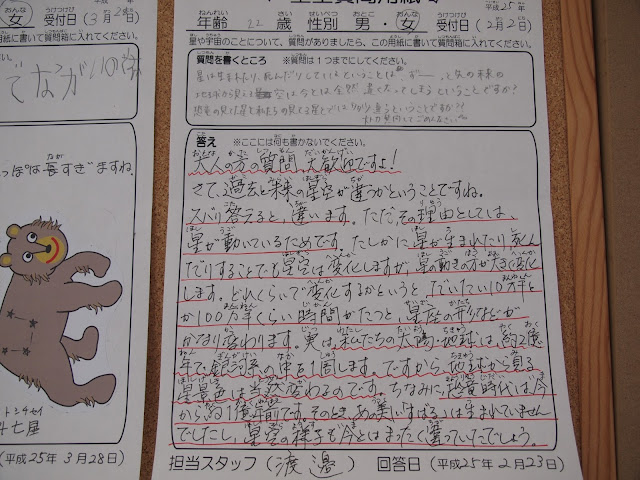 女
受付日(3月2日)
用紙に書いて質問箱に入れてください。
でながい10
っぽは長すぎますね。
トシチセイ
斗七星
(平成25年3月28日)
年齢 22 歳 性別 男・女 受付日 平成25年(2月2日)
星や宇宙のことについて、質問がありましたら、この用紙に書いて質問箱に入れてください。
質問を書くところ ※質問は1つまでにしてください。
星は生まれたり、死んだりしているということは、ずーっと先の未来の
地球から見える星空は今とは全然違くなってしまうということですか?
恐竜の見てた星と私たちの見てる星とではかなり違うということですか?!
大人が質問してごめんなさい
答え ※ここには何も書かないでください。
大人の方の質問、大歓迎ですよ!
さて、過去と未来の星空が違うかということですね。
ズバリ答えると、違います。ただ、その理由としては、
星が動いているためです。たしかに星が生まれたり死ん
だりすることでも星空は変化しますが、星の動きの方が大きく変化
します。どれくらいで変化するかというと、だいたい10万年と
か100万年くらい時間がたつと、星座の形などが
かなり変わります。実は、私たちの太陽・地球は、約2億
年で銀河系の中を1周します。ですから地球から見る
星景色は当然変わるのです。ちなみに恐竜時代は今
から約1億年前です。そのとき、あの美しいすばるは生まれていません
でしたし、星空の様子も今とはまったく違っていたでしょう。
担当スタッフ(渡邉) 回答日(平成25年2月23日)